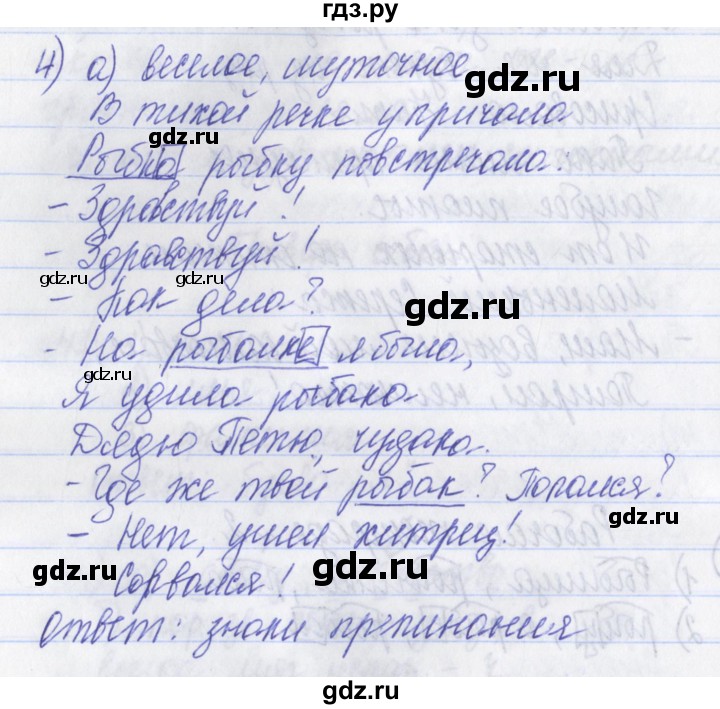 гдз.ру
4) а) веселое, шуточное
В тихой речке у причала
gdz.ru
Рыбка рыбку повстречала:
- Здравствуй!
gdz.ru
- Здравствуй!
gdz.ru gdz.ru
- Как дела?
gdz.ru
- На рыбалке я была,
gdz.ru
Я удила рыбака
Дядю Петю, чудака.
- Где же твой рыбак? Попался?
gdz.ru
- Нет, ушел хитрец!
gdz.ru
Сорвался!
ответ: знаки препинания
gdz.ru